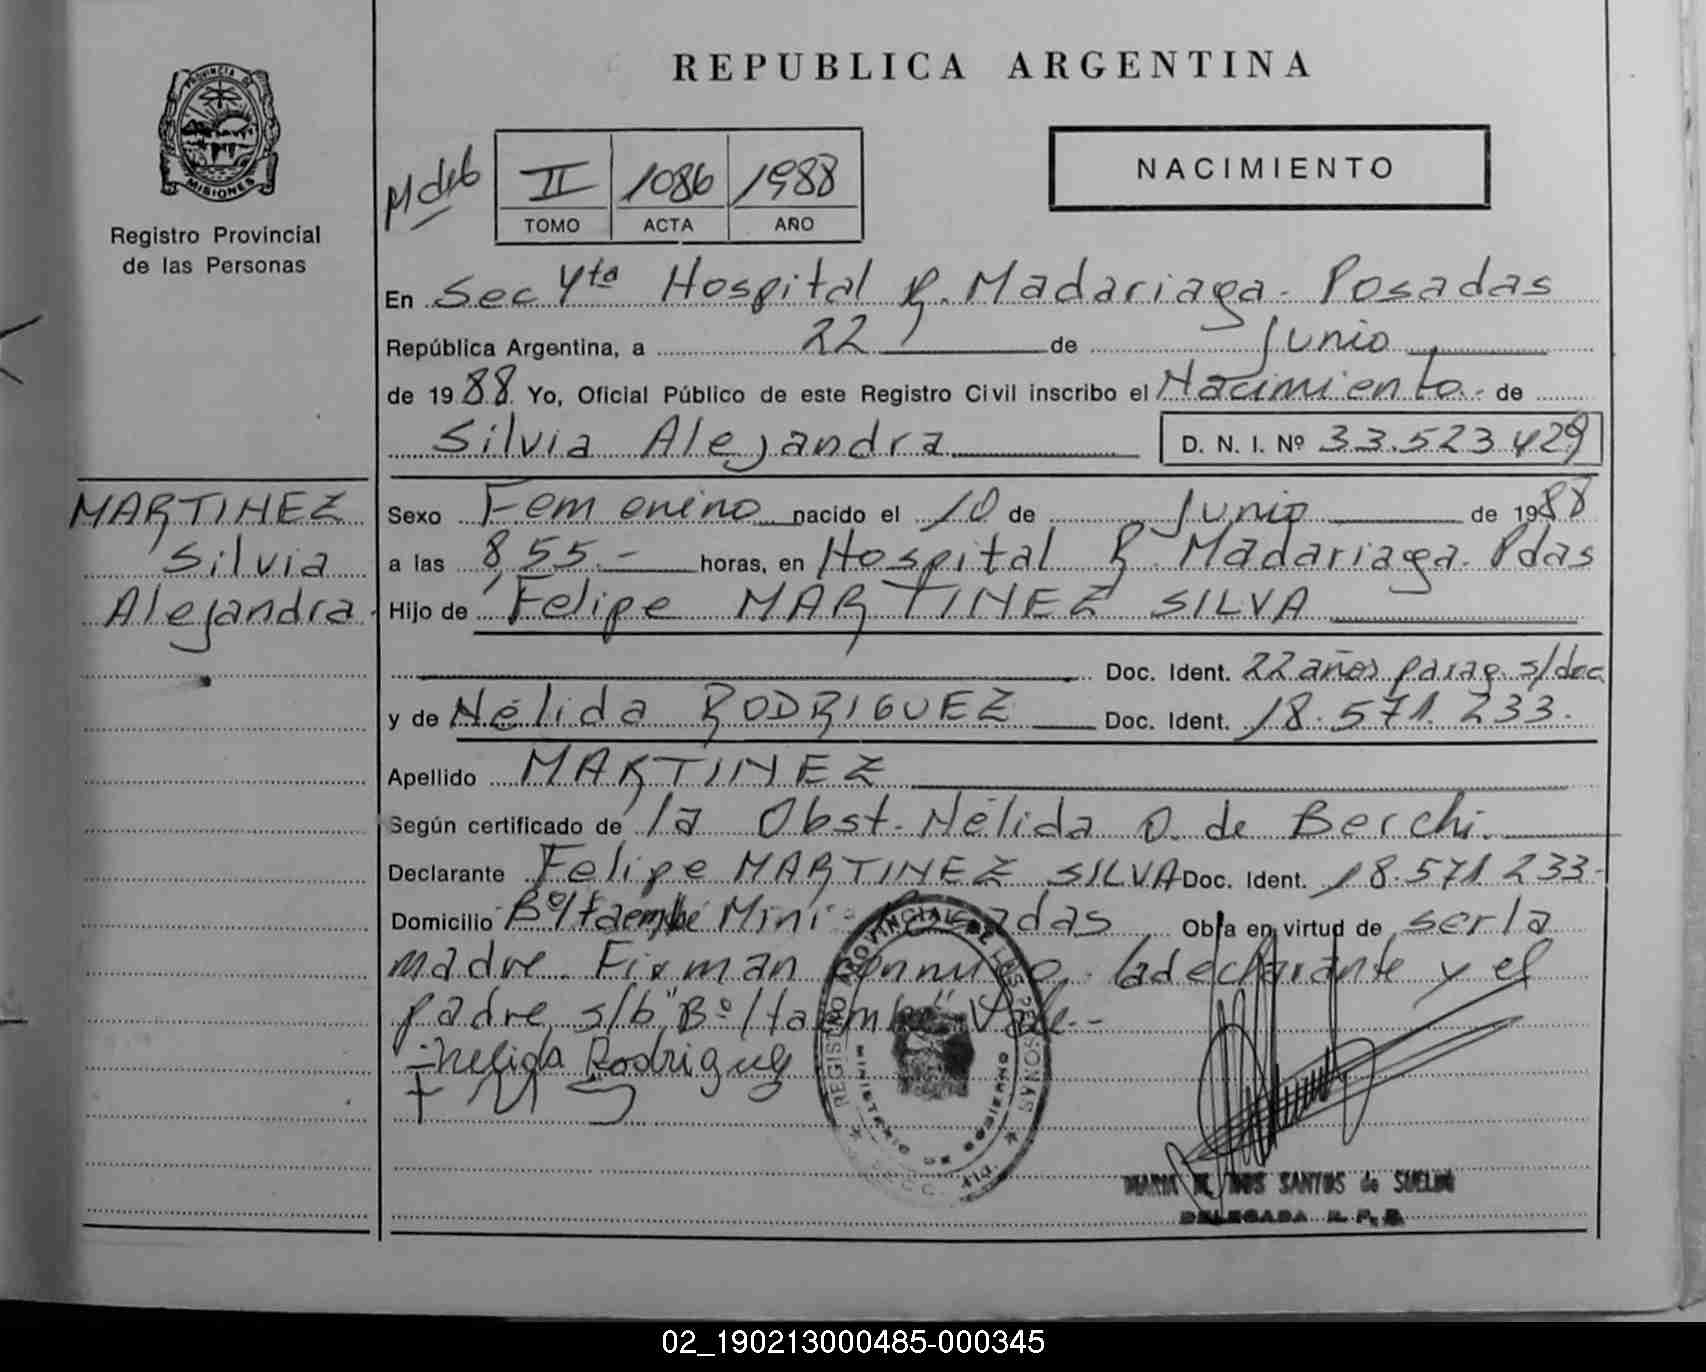 REPUBLICA ARGENTINA
PROVINCIA DE
MISIONES
Registro Provincial
de las Personas
II 1086 1988
TOMO ACTA AÑO
NACIMIENTO
En Sec 4ta Hospital R. Madariaga - Posadas
República Argentina, a 22 de Junio
de 1988 Yo, Oficial Público de este Registro Civil inscribo el Nacimiento.- de
Silvia Alejandra D. N. I. Nº 33.523.429
MARTINEZ
Silvia
Alejandra.
Sexo Femenino nacido el 10 de Junio de 1988
a las 8,55.- horas, en Hospital R. Madariaga. Pdas
Hijo de Felipe MARTINEZ SILVA
Doc. Ident. 22 años parag. s/doc
y de Nélida RODRIGUEZ Doc. Ident. 18.571.233.
Apellido MARTINEZ
Según certificado de la Obst. Nélida O. de Berchi.
Declarante Felipe MARTINEZ SILVA Doc. Ident. 18.571.233-
Domicilio Bº Itaembé Mini - Posadas Obra en virtud de ser la
madre. Firman conmigo la declarante y el
padre, s/b "Bº Itaembé" Vale.-
Nelida Rodriguez
REGISTRO PROVINCIAL DE LAS PERSONAS
MINISTERIO DE GOBIERNO
DOS SANTOS de
DELEGADA R. P. P.
02_190213000485-000345